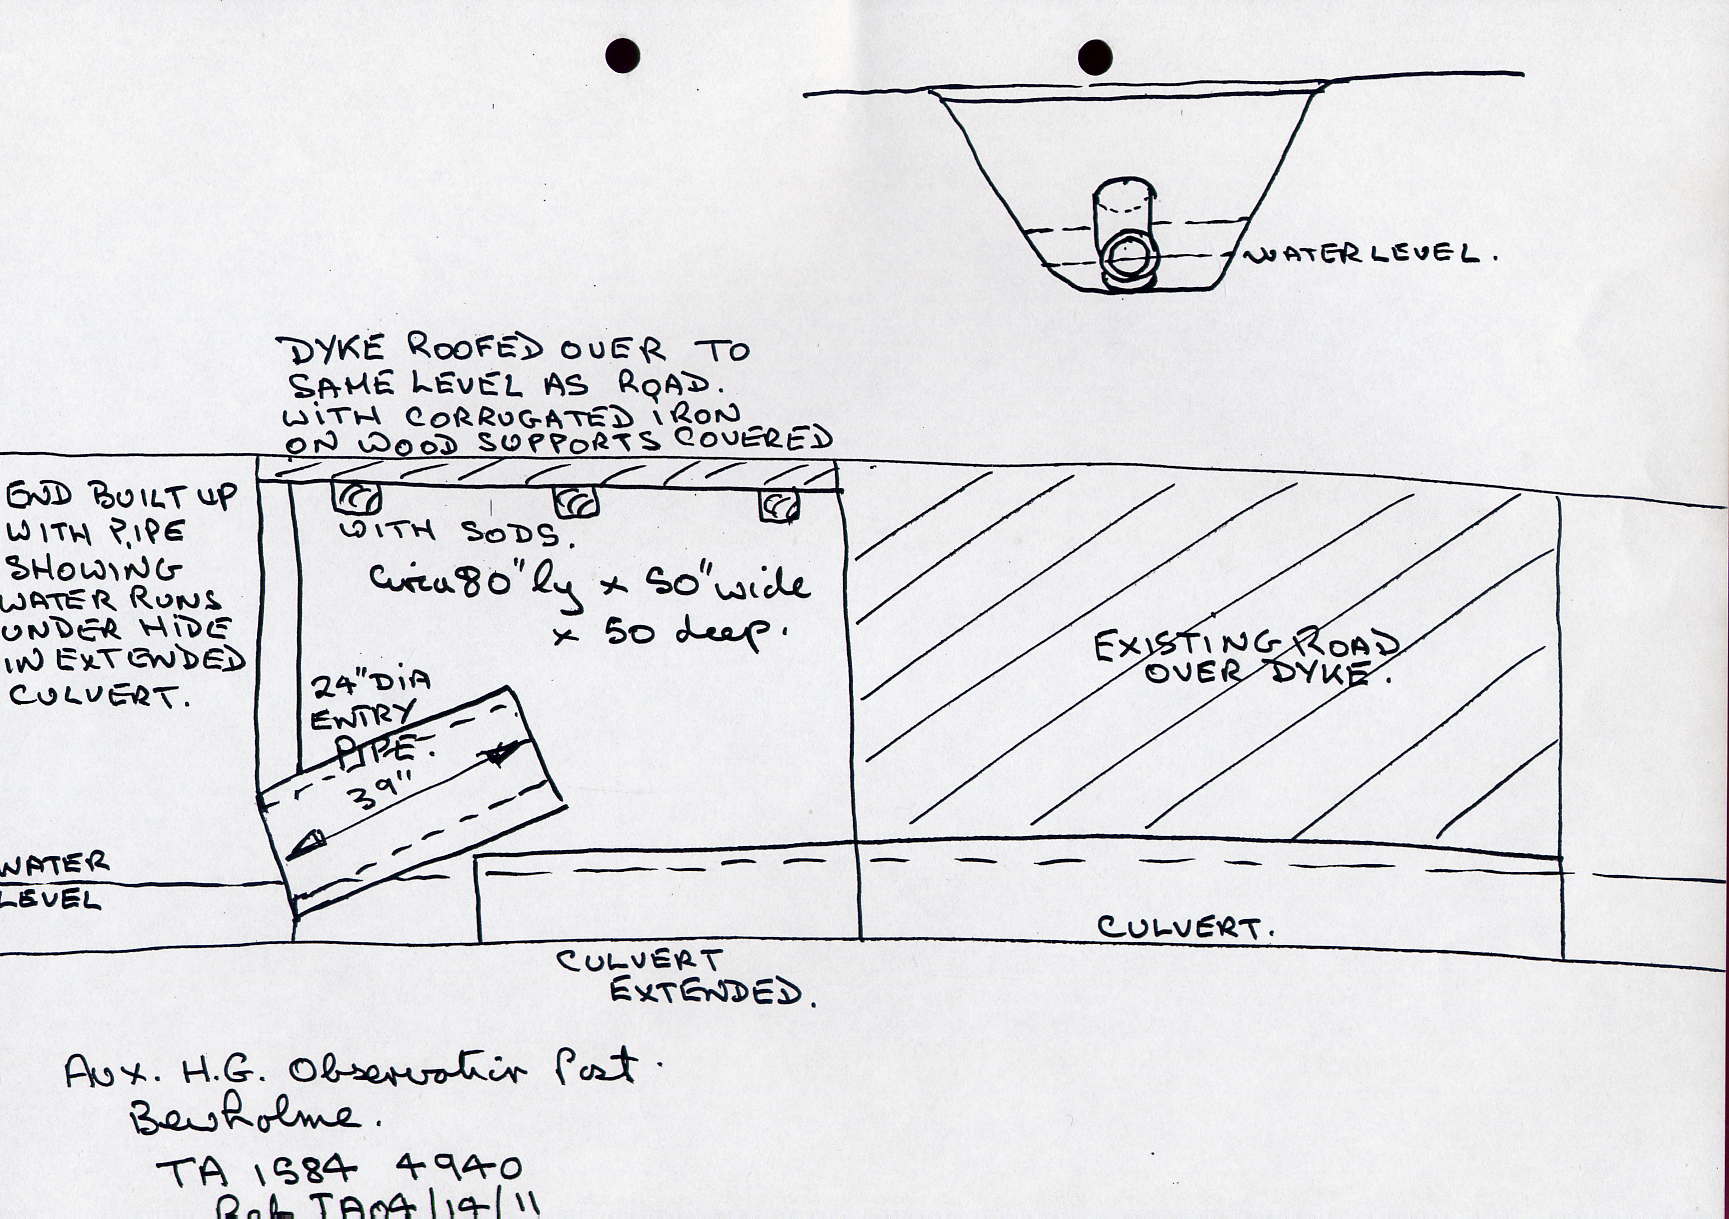 WATER LEVEL.
DYKE ROOFED OVER TO
SAME LEVEL AS ROAD.
WITH CORRUGATED IRON
ON WOOD SUPPORTS COVERED
WITH SODS.
Circa 80" lg x 50" wide
x 50 deep.
END BUILT UP
WITH PIPE
SHOWING
WATER RUNS
UNDER HIDE
IN EXTENDED
CULVERT.
24" DIA
ENTRY
PIPE.
39"
EXISTING ROAD
OVER DYKE.
WATER
LEVEL
CULVERT.
CULVERT
EXTENDED.
Aux. H.G. Observation Post.
Bewholme.
TA 1584 4940
Ref TA04/14/11